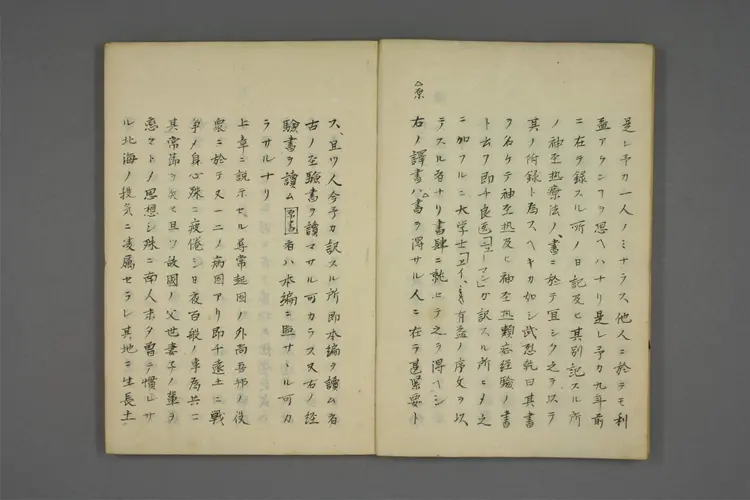 是レ予カ一人ノミナラス他人ニ於テモ利
益アランヿヲ思ヘハナリ是レ予カ九年前
ニ在テ録スル所ノ日記及ヒ其別記スル所
ノ神至热療法ノ書ニ於テ宜シク之ヲ以テ
其ノ附録ト為スヘキカ如シ武烈乱曰其書
ヲ名ケテ神至热及ヒ神至热類容経験ノ書
ト云フ即チ良医「ユーマン」カ訳スル所ニメ之
ニ加フルニ大学士有益ノ序文ヲ以
テスル者ナリ書肆ニ就ヒテ之ヲ得ヘシ
△原
右ノ譯書ハ△書ヲ得サル人ニ在テ甚緊要ト
ス、且ツ人今予カ訳スル所即本編ヲ讀ム者
古ノ至驗書ヲ讀マサル可カラス又右ノ经
驗書ヲ讀ム者ハ本編ニ無サトル可カ
ラサルナリ
上章ニ説示セル尋常起因ノ外尚吾邦ノ役
衆ニ於テ又一二ノ病因アリ即チ遠土ニ戰
争ノ身心殊ニ疲倦シ日夜百般ノ事為共ニ
其常節ヲ失ヒ且ツ故國ノ父世妻子ノ輩ヲ
恋々トノ思想シ殊ニ南人ホタ曽テ慣レサ
ル北海ノ投気ニ凌属セラレ其地ニ生長土